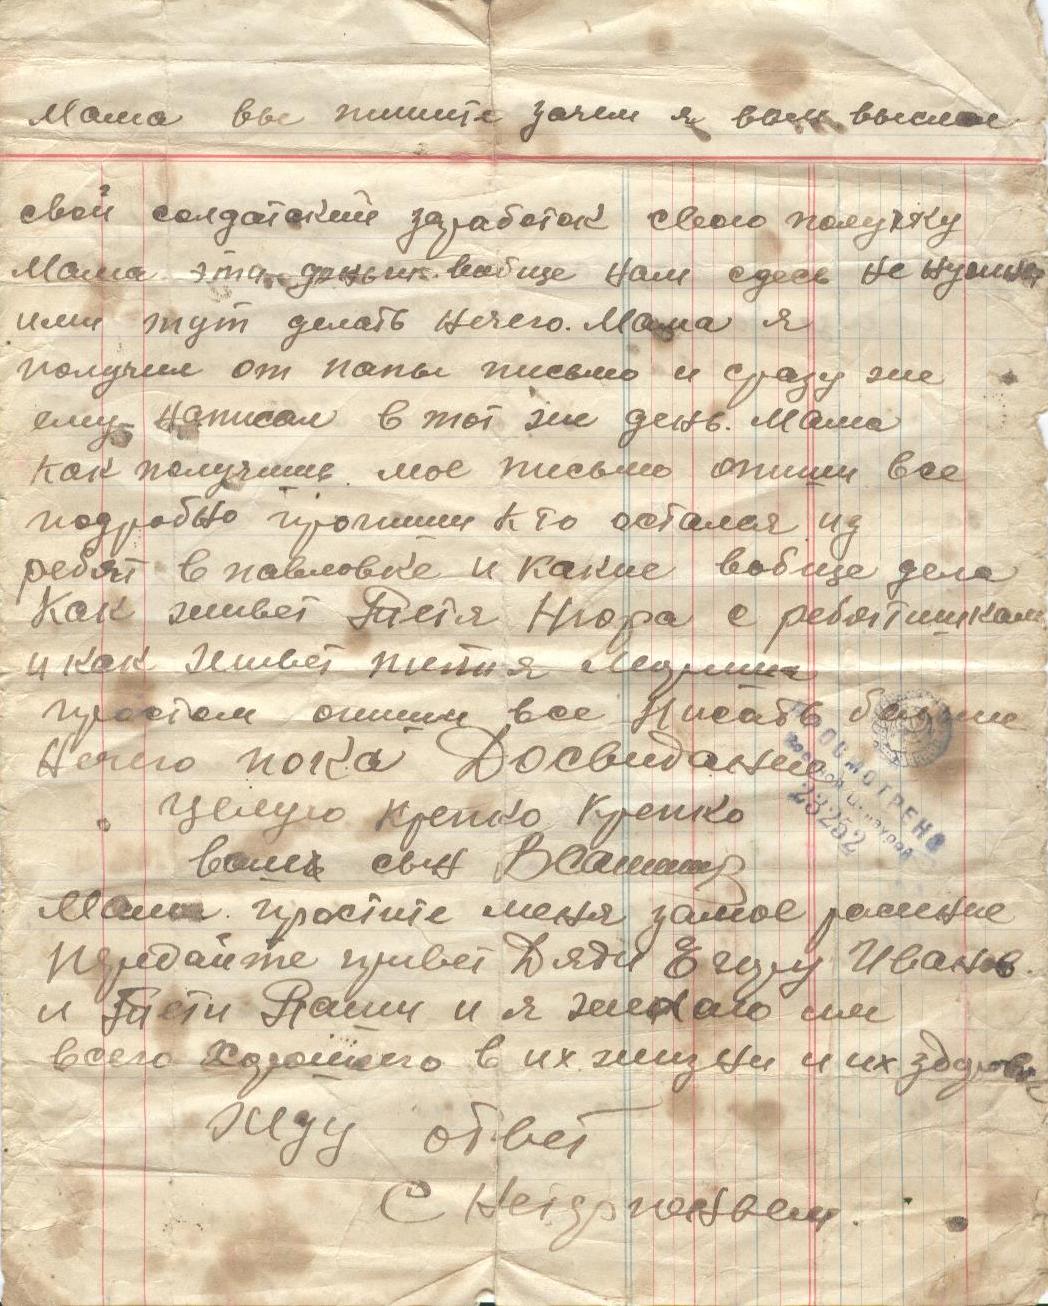 Мама вы пишите зачем я вам выслал
свой солдатский заработок свою получку
Мама эти деньги вобще нам сдесь не нужны
ими тут делать нечего. Мама я
получил от папы письмо и сразу же
ему написал в тот же день. Мама
как получишь мое письмо опиши все
подробно пропиши кто остался из
ребят в павловке и какие вобще дела
Как живет Тетя Нюра с ребятишкам
и как живет тетя
опиши все писать больше
Нечего пока Досвидание
Целую крепко крепко
вашь сын
Мама простите меня за мое
Передайте привет Дяди Егору Иванов.
и Тети Паши и я желаю им
всего хорошего в их жизни и их здоровья
Жду ответ
С Нетерпеньем.
ПРОСМОТРЕНО
Военной Цензурой
23252